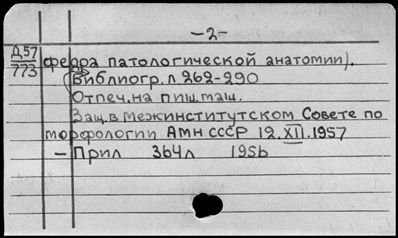 -2-
Д57
773
федра патологической анатомии).
Библиогр. л 262-290
Отпеч. на пиш. маш.
Защ. в межинститутском Совете по
морфологии АМН СССР 12.XII.1957
- Прил 364л 1956